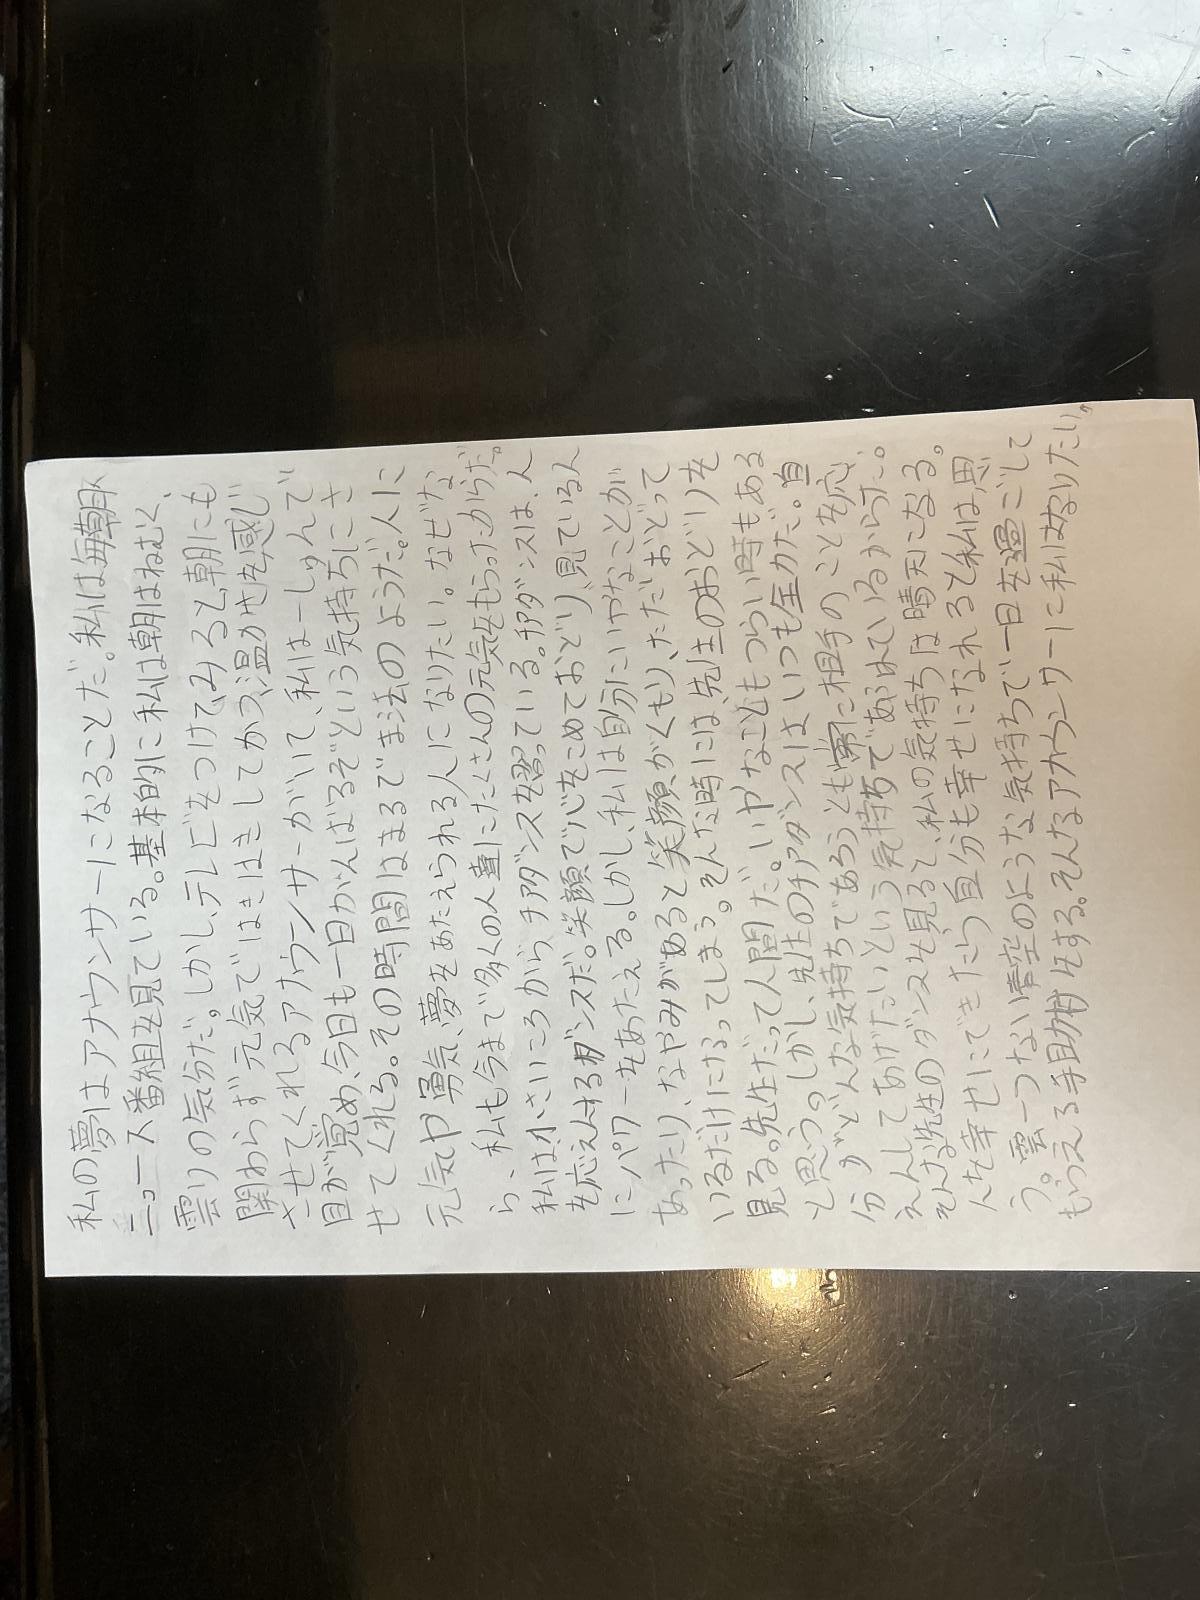 私の夢はアナウンサーになることだ。私は毎朝
ニュース番組を見ている。基本的に私は朝はねむく、
曇りの気分だ。しかし、テレビをつけてみると、朝にも
関わらず元気ではきはきしてかつ、温かさを感じ
させてくれるアナウンサーがいて、私は一しゅんで
目が覚め、今日も一日がんばるぞという気持ちにさ
せてくれる。その時間はまるでま法のようだ。人に
元気や勇気、夢をあたえられる人になりたい。なぜな
ら、私も今まで多くの人達にたくさんの元気をもらったからだ。
私は小さいころからチアダンスを習っている。チアダンスは、人
を応えんするダンスだ。笑顔で心をこめておどり、見ている人
にパワーをあたえる。しかし、私は自分にいやなことが
あったり、なやみがあると笑顔がくもり、ただおどって
いるだけになってしまう。そんな時には、先生のおどりを
見る。先生だって人間だ。いやなこともつらい時もある
と思う。しかし、先生のチアダンスはいつも全力だ。自
分がどんな気持ちであろうとも常に相手のことを応
えんしてあげたいという気持ちであふれているからだ。
そんな先生のダンスを見ると、私の気持ちは晴天になる。
人を幸せにできたら自分も幸せになれると私は思
う。雲一つない青空のような気持ちで一日を過ごして
もらえる手助けをする。そんなアナウンサーに私はなりたい。